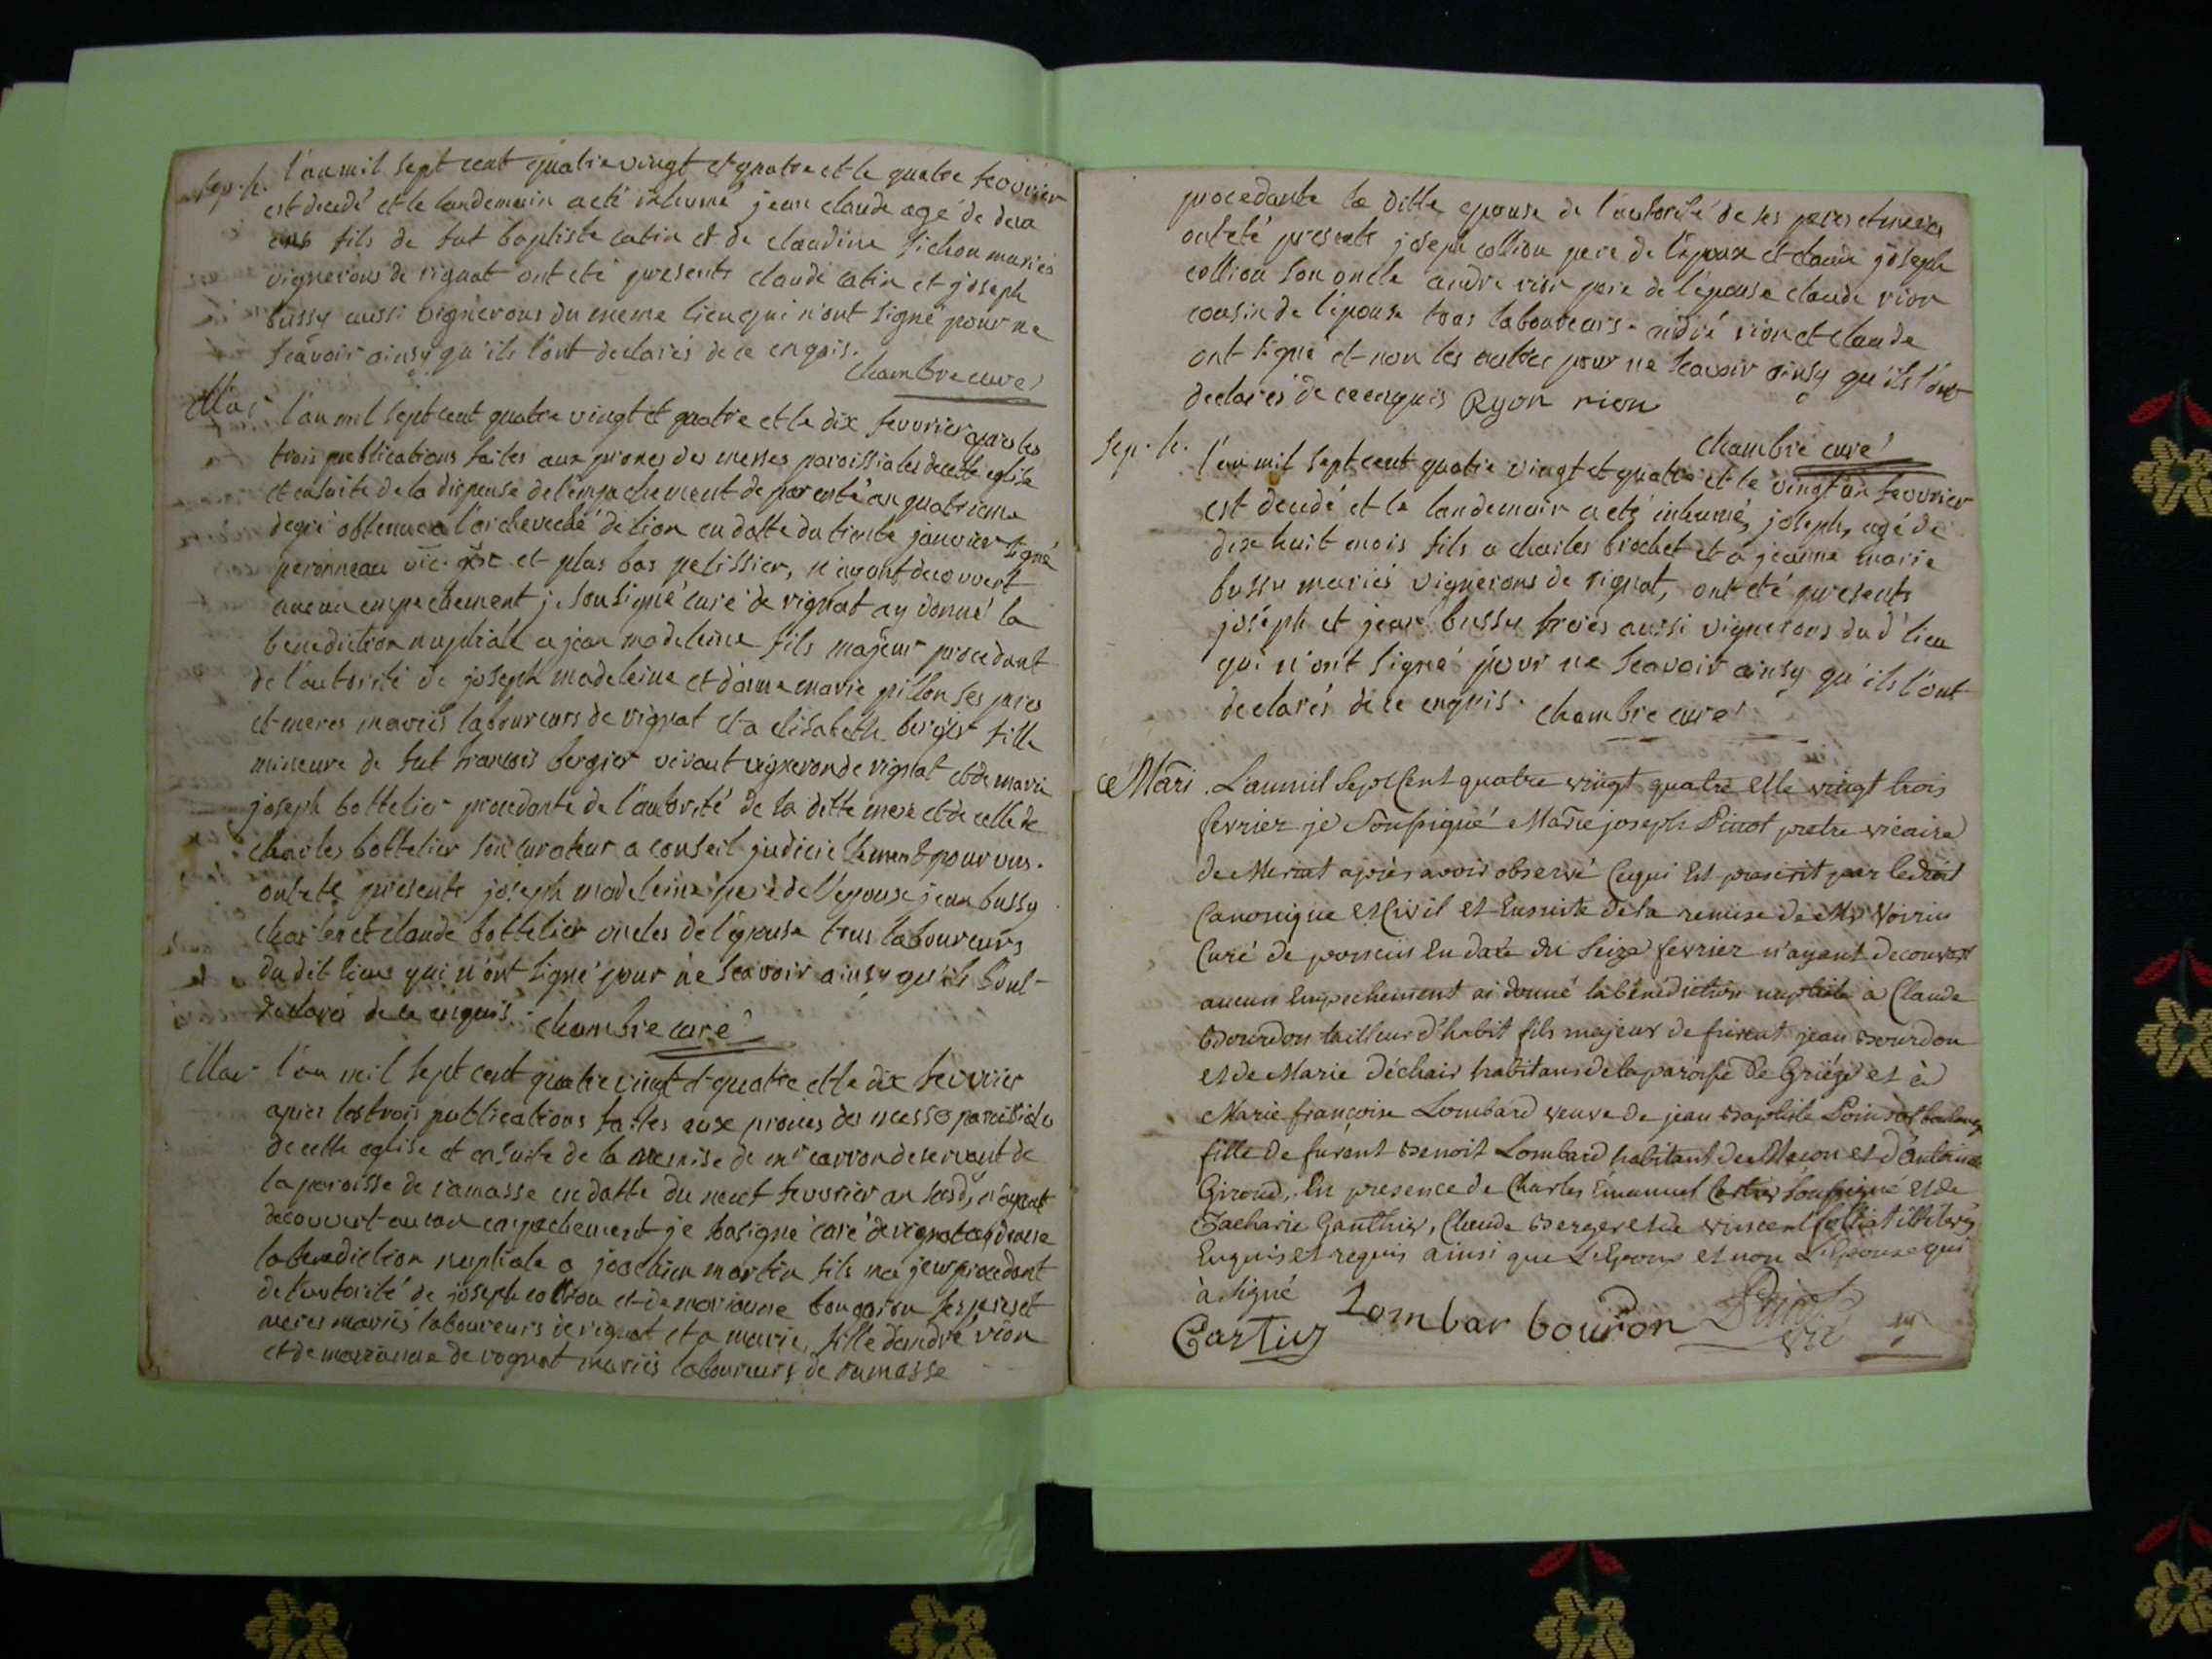 sep.h. l'an mil sept cent quatre vingt et quatre et le quatre fevvrier
est decedé et le landemain a eté inhumé jean claude agé de deux
ans fils de fut baptiste catin et de claudine sichon mariés
vignerons de rignat ont eté presents claude catin et joseph
bussy aussi vignerons du meme lieu qui n'ont signé pour ne
scavoir ainsy qu'ils l'ont declarés de ce enquis.
chambre curé
Mar l'an mil sept cent quatre vingt et quatre et le dix fevvrier apres les
trois publications faites aux prones des messes paroissiales de cette eglise
et ensuite de la dispense de l'empechement de parenté au quatrieme
degré obtenue a l'archeveché de lion en datte du trente janvier signé
peronneau vic. et plus bas pelissier, n'ayant decouvert
aucun empechement je sousigné curé de rignat ay donné la
benediction nuptiale a jean madeleine fils majeur procedant
de l'autorité de joseph madeleine et d'anne marie pillon ses peres
et meres mariés laboureurs de rignat et a elisabeth bergier fille
mineure de fut francois bergier vivant vigneron de rignat et de marie
joseph bottelier procedante de l'autorité de la ditte mere et de celle de
charles bottelier son curateur a conseil judiciellement pourvus.
ont eté presents joseph madeleine pere de l'epoux jean bussy
charles et claude bottelier oncles de l'épouse tous laboureurs
du dit lieu qui n'ont signé pour ne scavoir ainsy qu'ils l'ont
declaré de ce enquis. chambre curé
Mar l'an mil sept cent quatre vingt et quatre et le dix fevvrier
apres les trois publications faites aux prones des messes paroissiales
de cette eglise et ensuite de la remise de mr carron deservant de
la paroisse de ramasse en datte du neuf fevvrier an susd, n'ayant
decouvert aucun empechement je sousigné curé de rignat ay donné
la benediction nuptiale a joachim martin fils majeur procedant
de l'autorité de joseph collion et de marianne ses peres et
meres mariés laboureurs de rignat et a marie, fille d'andré rion
et de marianne de rognat mariés laboureurs de ramasse
procedante la ditte epouse de l'autorité de ses peres et meres
ont eté presents joseph collion pere de l'epoux et claude joseph
collion son oncle andré rion pere de l'épouse claude rion
cousin de l'épouse tous laboureurs. andré rion et claude
ont signé et non les autres pour ne scavoir ainsy qu'ils l'ont
declarés de ce enquis Ryon rion
chambre curé
sep.h. l'an mil sept cent quatre vingt et quatre et le vingt un fevvrier
est decedé et le landemain a eté inhumé, joseph, agé de
dix huit mois fils a charles brochet et à jeanne marie
bussy mariés vignerons de rignat, ont eté presents
joséph et jean bussy freres aussi vignerons du d' lieu
qui n'ont signé pour ne scavoir ainsy qu'ils l'ont
declarés de ce enquis. chambre curé
Mari. L'an mil Sept Cent quatre vingt quatre et le vingt trois
fevrier je soussigné Marie joseph Pinot pretre vicaire
de Meriat après avoir observé Ce qui Est prescrit par le droit
Canonique et Civil et Ensuite de la remise de Mr Voirin
Curé de poncin En date du Seize fevrier n'ayant decouvert
aucun Empechement ai donné la bénédiction nuptiale à Claude
Bourdon tailleur d'habit fils majeur de furent jean Bourdon
et de Marie Déchair habitans de la paroisse De Griége et à
Marie françoise Lombard veuve de jean Baptiste
fille de furent Benoit Lombard habitant de Macon et d'Antoinette
Giroud, En presence de Charles Emanuel Cartier soussigné et de
Zacharie Gauthier, Claude Berger et de vincent illiterés
Enquis et requis ainsi que L'Epoux et non L'Epouse qui
à signé
Cartier Lombar bourdon Pinot vic